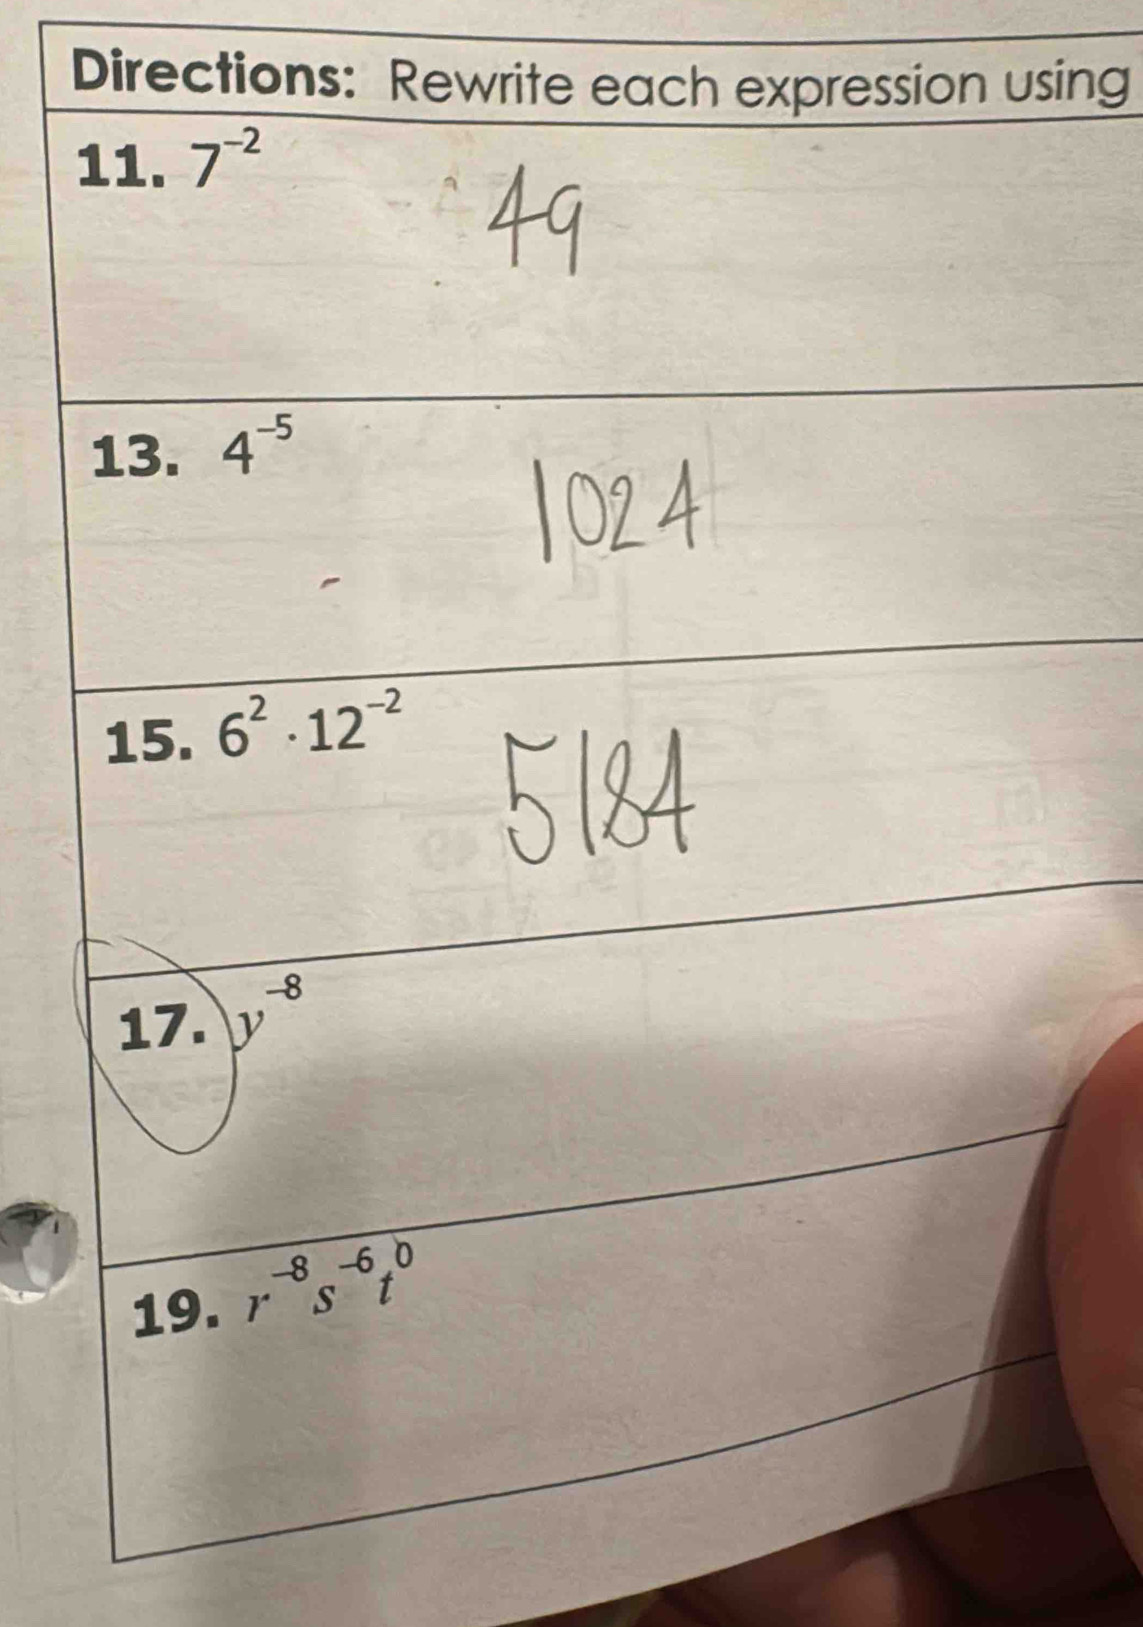 Directions: Rewrite each expression using
11. 7⁻²
49
13. 4⁻⁵
1024
15. 6² · 12⁻²
5184
17. y⁻⁸
19. r⁻⁸s⁻⁶t⁰